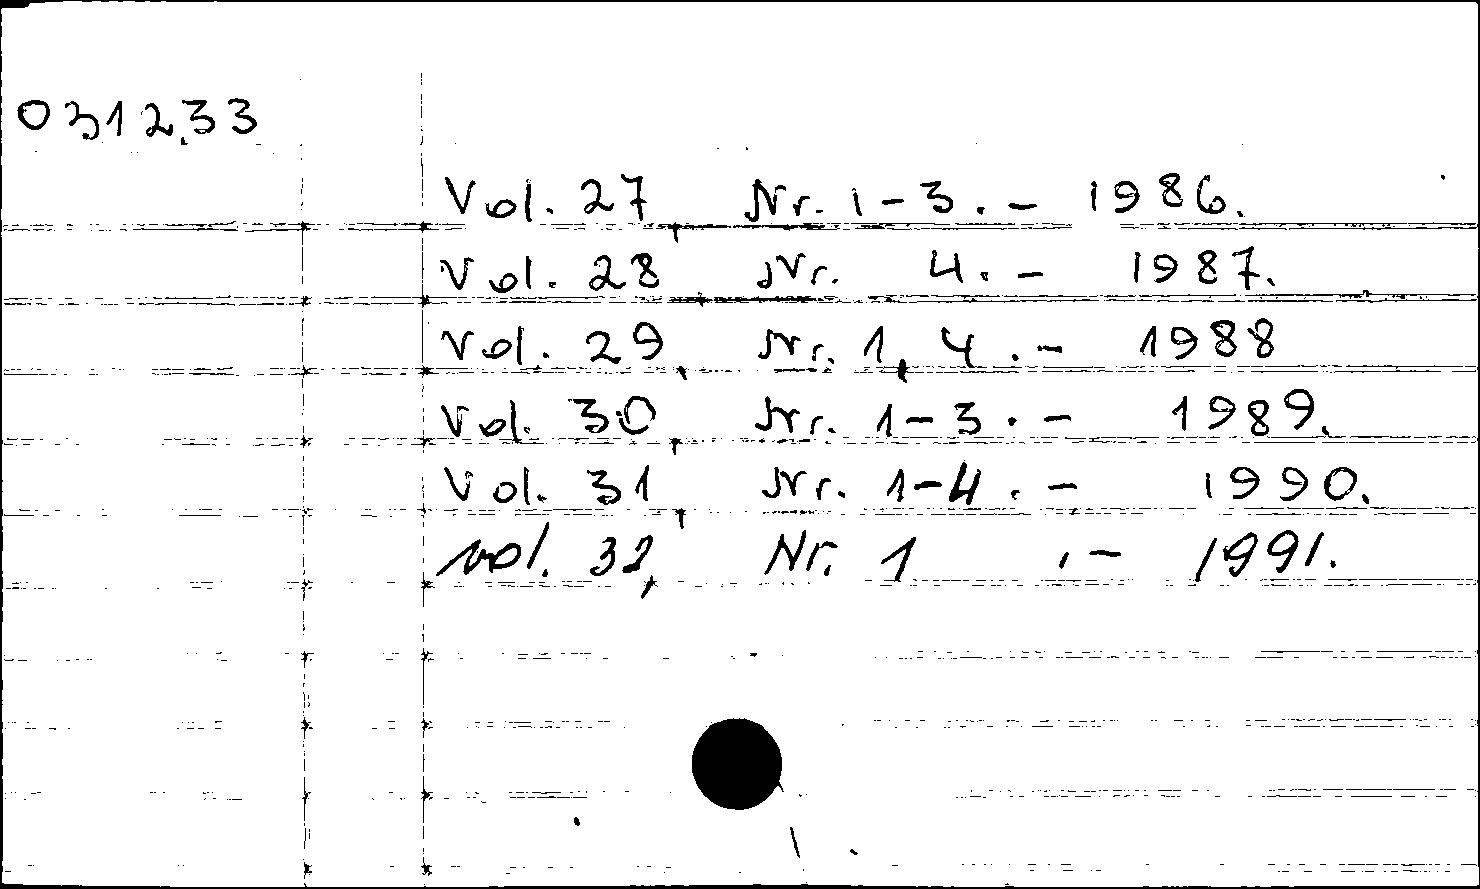 031233
Vol. 27, Nr. 1-3. - 1986.
Vol. 28, Nr. 4. - 1987.
Vol. 29, Nr. 1, 4. - 1988
Vol. 30, Nr. 1-3. - 1989.
Vol. 31, Nr. 1-4. - 1990.
Vol. 32, Nr. 1 . - 1991.